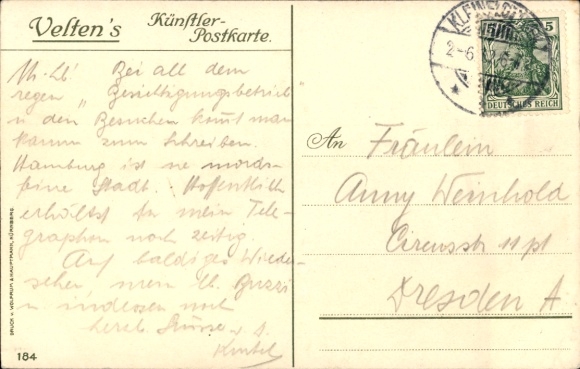 Velten's Künstler-
Postkarte.
Bei all dem
regen „Besichtigungsbetrieb"
u den Besuchen kommt man
kaum zum Schreiben.
Hamburg ist ne mords-
feine Stadt. Hoffentlich
erhältst Du mein Tele-
gramm noch zeitig.
Auf baldiges Wieder-
sehen, mein lb.
indessen noch
herzl. Grüsse
184
DRUCK V. WOLFRUM & HAUPTMANN, NÜRNBERG
5
DEUTSCHES REICH
KLEIN FLOTTBEK
An Fräulein
Anny Weinhold
Circusstr 11 pt
Dresden A